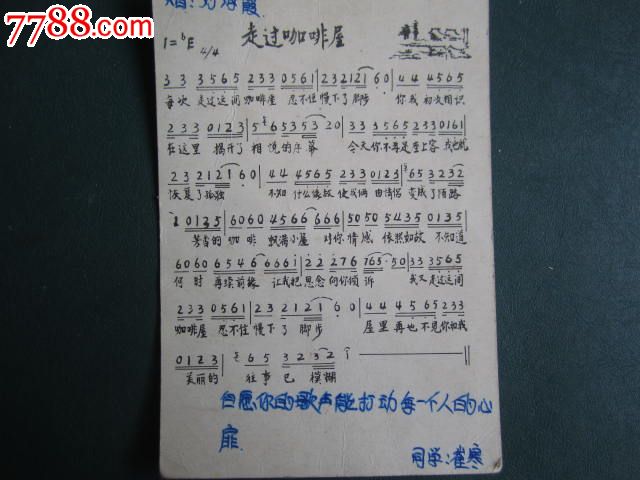 7788.com
中国收藏热线
走过咖啡屋
1=♭E 4/4
3 3 3 5 6 5 2 3 3 0 5 6 1 | 2 3 2 1 2 1 6 0 | 4 4 4 5 6 5
每次 走过这间 咖啡屋 忍不住 慢下了 脚步 你我 初次相识
2 3 3 0 1 2 3 | 5 6 5 3 5 3 2 0 | 3 3 3 5 6 5 2 3 3 0 1 6 1
在这里 揭开了 相悦的序幕 今天 你不再是 座上客 我也就
2 3 2 1 2 1 6 0 | 4 4 4 5 6 5 2 3 3 0 1 2 3 | 6 5 3 2 3 2
恢复了孤独 不知 什么缘故 使我俩 由情侣 变成了陌路
1 0 1 3 5 | 6 0 6 0 4 5 6 6 6 6 | 5 0 5 0 5 4 3 5 0 1 3 5
芳香的 咖啡 飘满小屋 对你 情感 依然如故 不知道
6 0 6 0 6 5 4 6 6 6 6 i | 2 2 2 7 6 7 6 5 5 0 | 3 3 3 5 6 5
何时 再续前缘 让我把 思念 向你倾诉 我又 走过这间
2 3 3 0 5 6 1 | 2 3 2 1 2 1 6 0 | 4 4 4 5 6 5 2 3 3
咖啡屋 忍不住 慢下了 脚步 屋里 再也不见 你和我
0 1 2 3 | 6 5 3 2 3 2 1
美丽的 往事已模糊
但愿你的歌声能打动每一个人的心
扉.
同学:崔寒